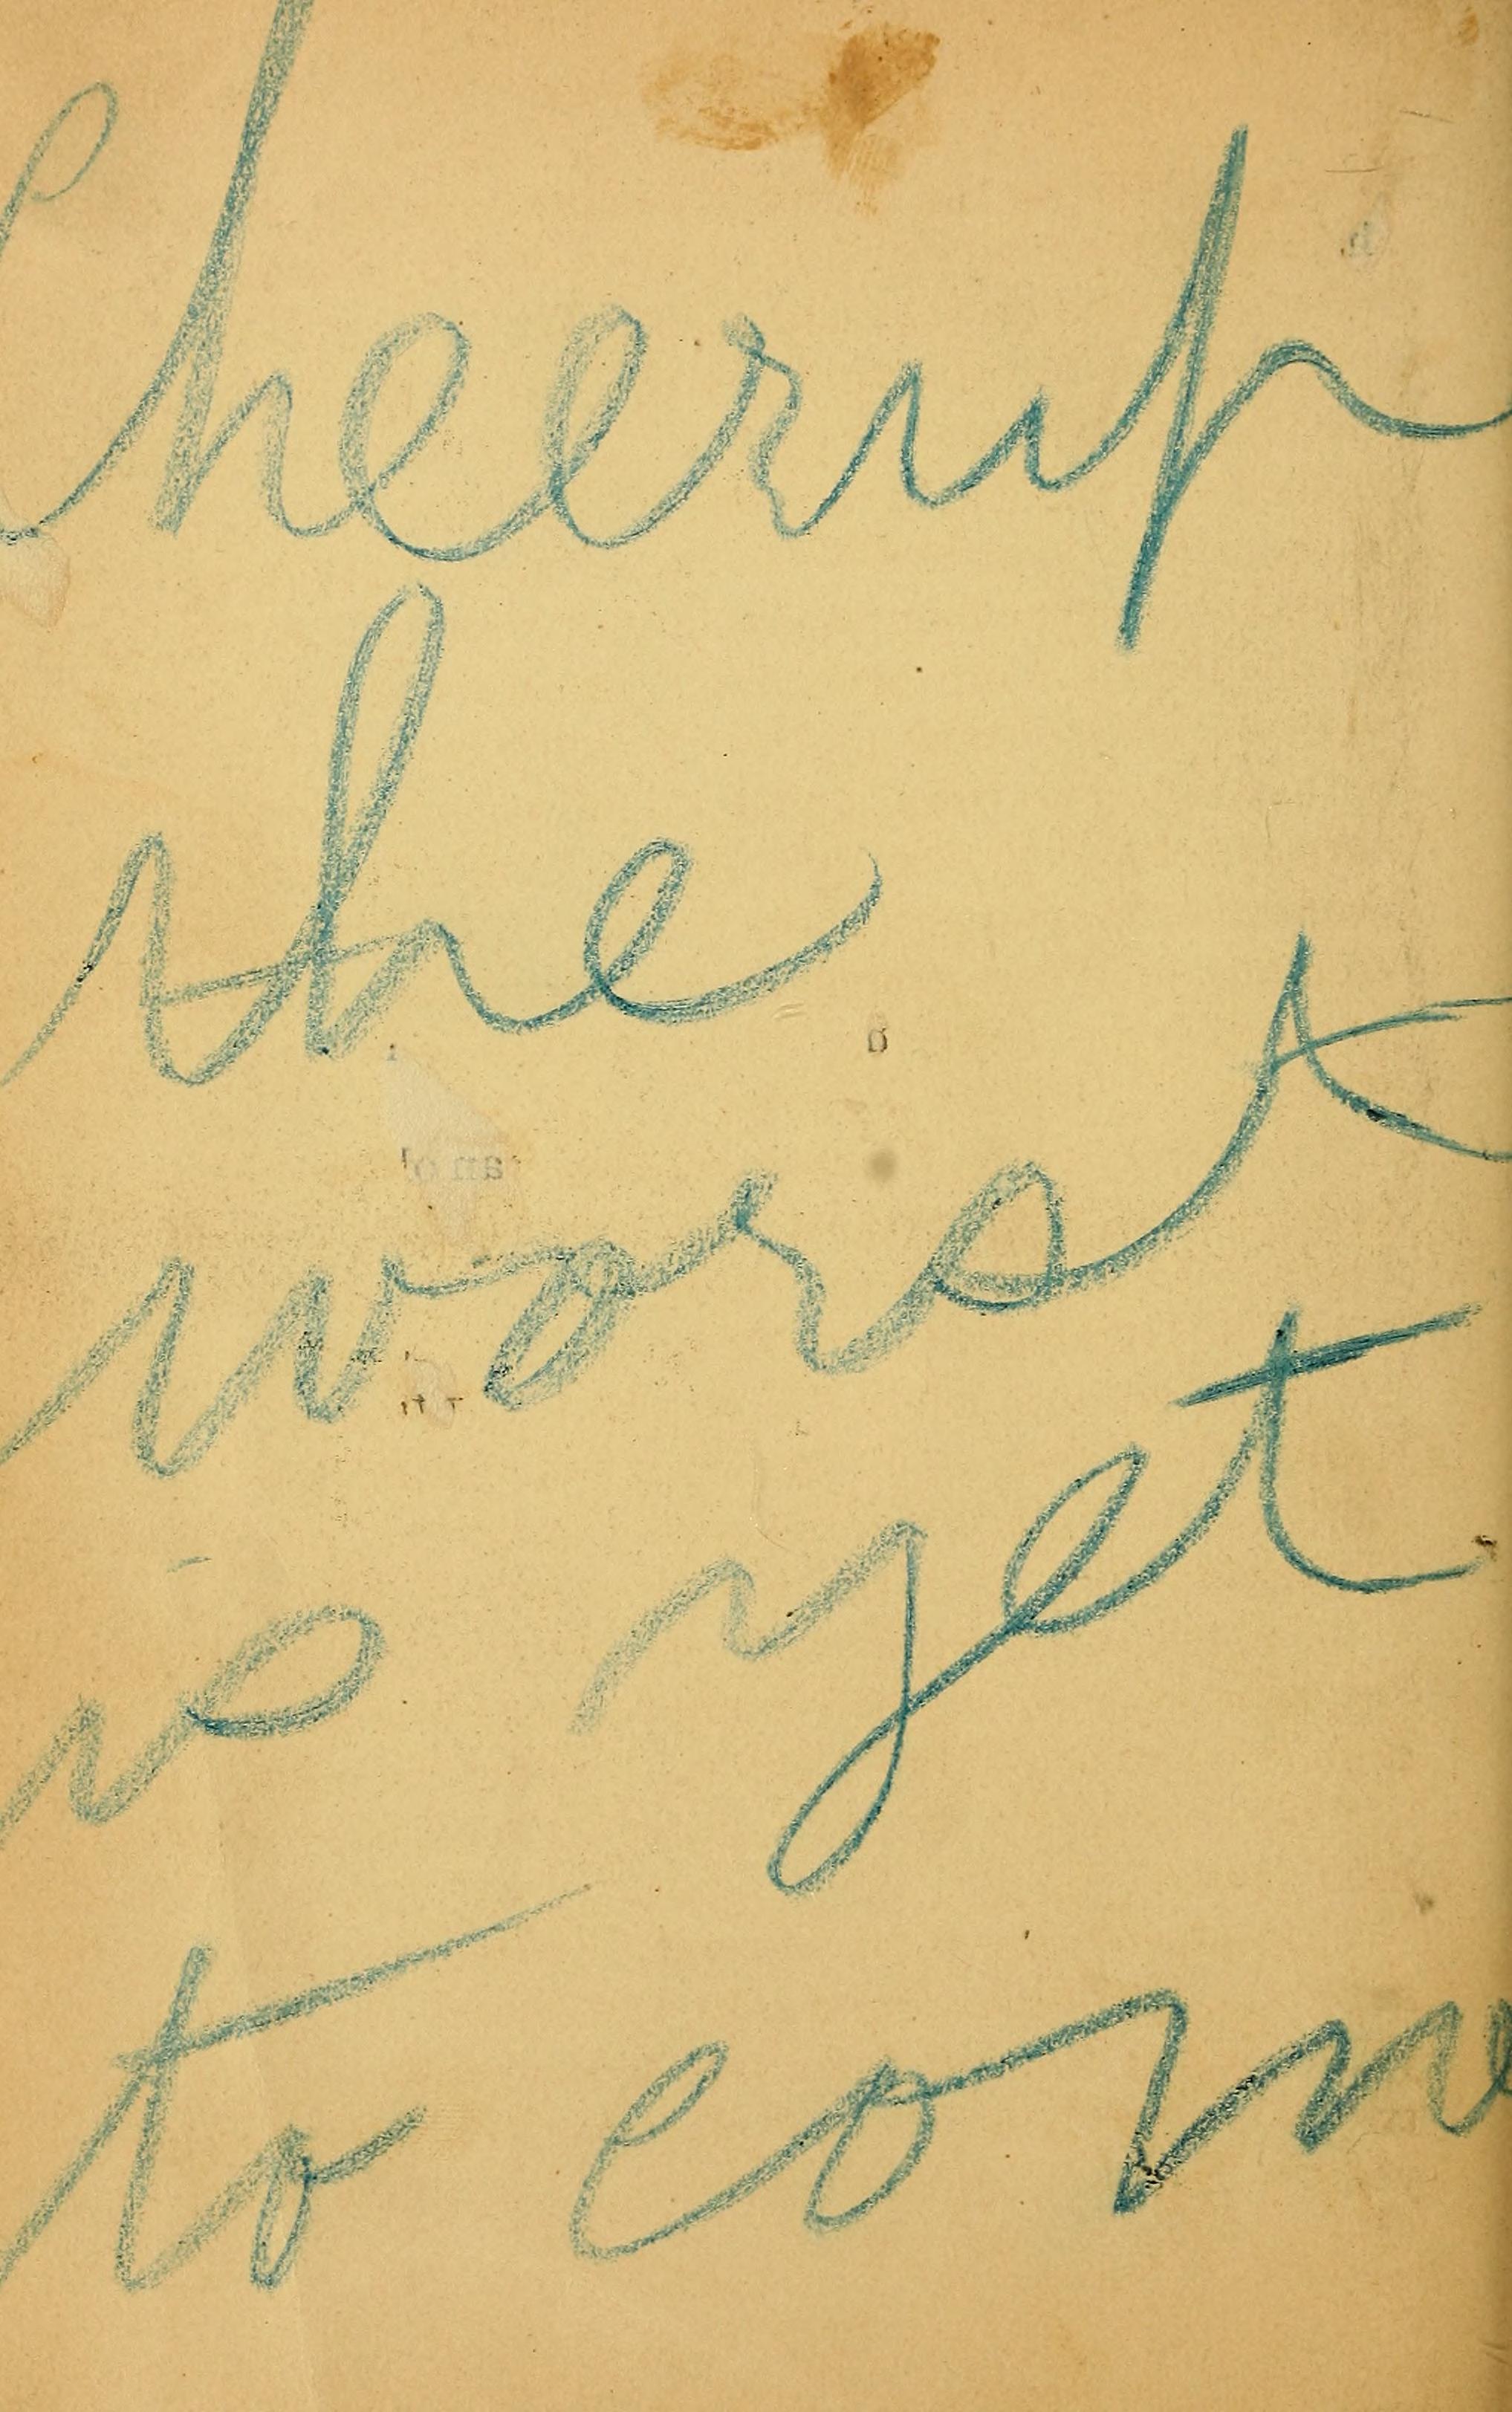 Cheer up
the
worst
is yet
to come